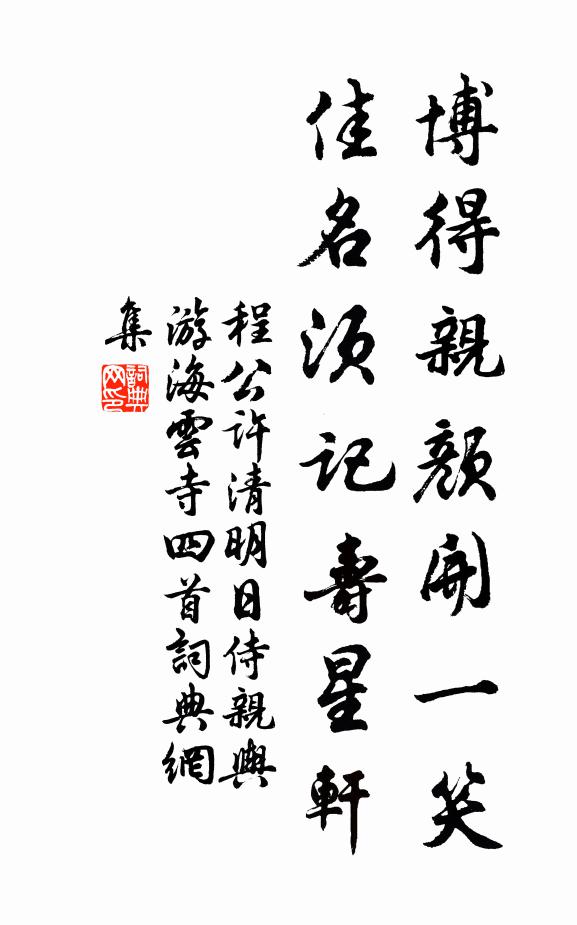 博得親顏開一笑
佳名須記壽星軒
程公許清明日侍親輿
游海雲寺四首詞典網
集
詞典
网印